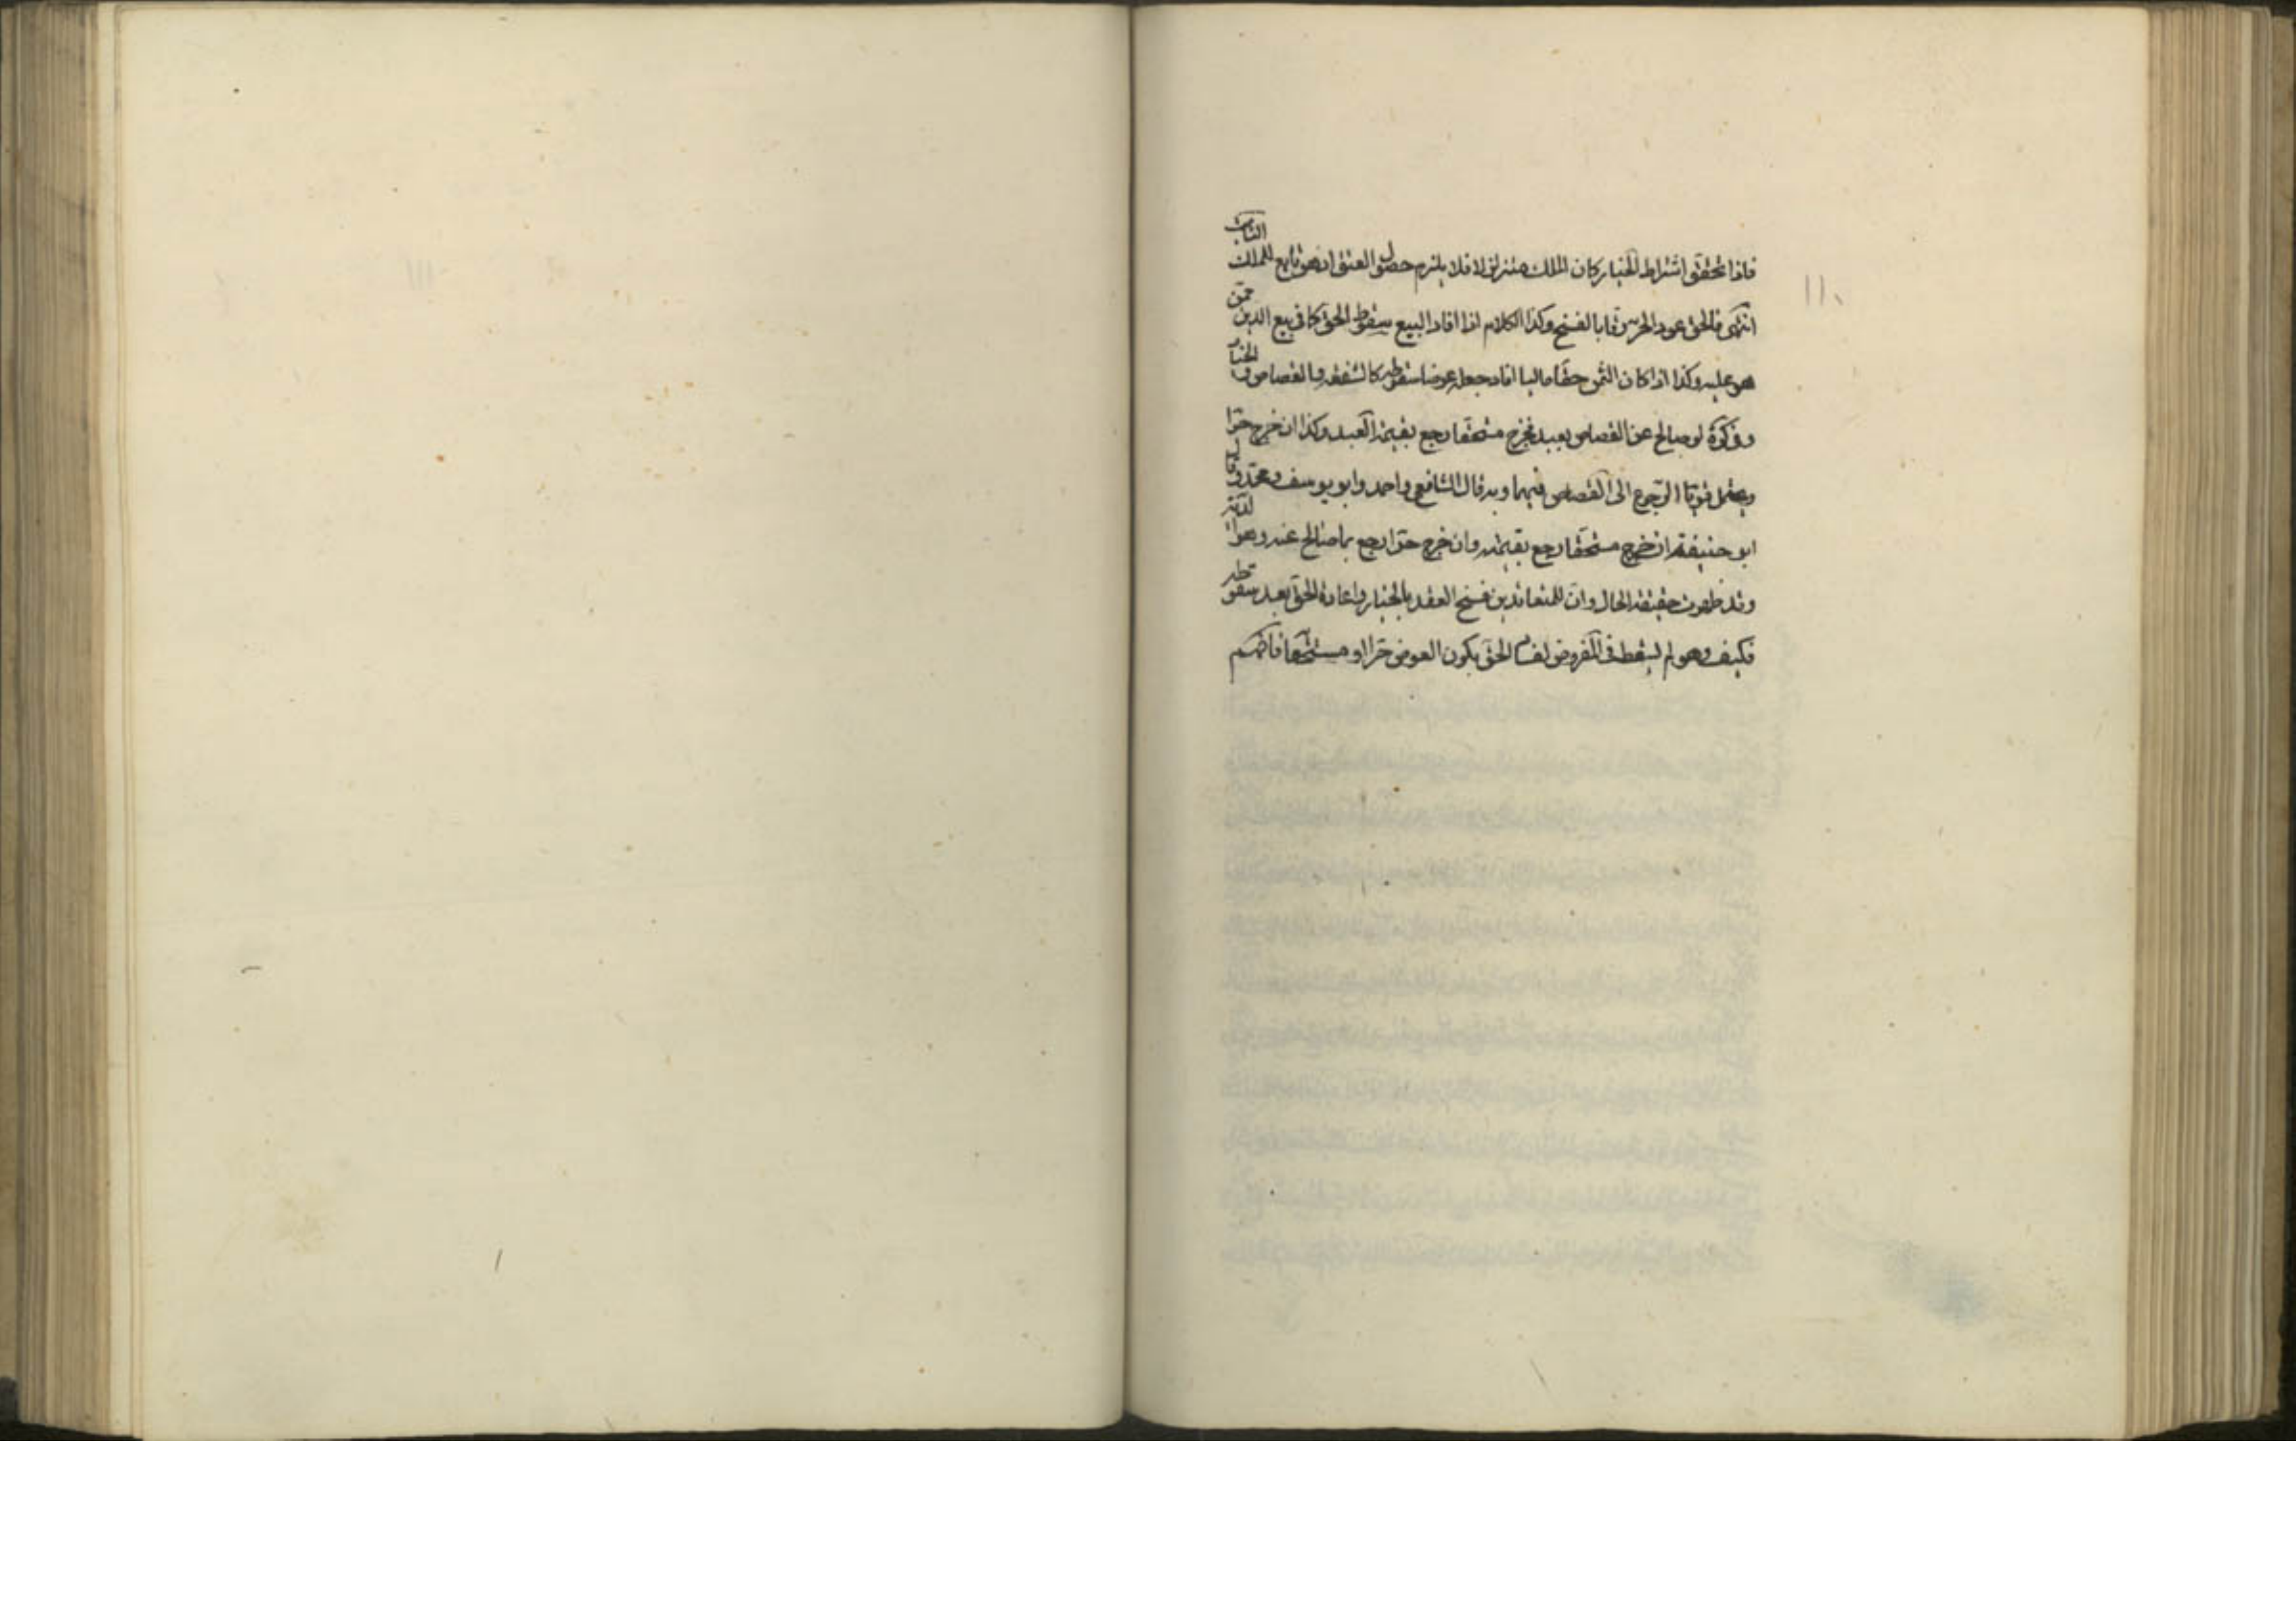 فاذا تحقق اشتراط الخيار كان الملك متزلزلا فلا يلزم حصول العتق اذ هو تابع للملك الثابت
انتهى فالحق عود الحر رقا بالفسخ وكذا الكلام اذا افاد البيع سقوط الحق كما في بيع الدين ممن
هو عليه وكذا اذا كان الثمن حقا ماليا افاد جعله عوضا سقوطه كالشفعة والقصاص والخيار
وفي كرة لو صالح عن القصاص بعبد فخرج مستحقا رجع بقيمة العبد وكذا ان خرج حرا
ويحتمل قويا الرجوع الى القصاص فيهما وبه قال الشافعي واحمد وابو يوسف ومحمد وقال
ابو حنيفة ان خرج مستحقا رجع بقيمته وان خرج حرا رجع بما صالح عنه وهو الدية
وقد ظهرت حقيقة الحال وان للمتعاقدين فسخ العقد بالخيار واعادة الحق بعد سقوطه
فكيف وهو لم يسقط في المفروض لفساد الحق بكون العوض حرا او مستحقا فافهم
١١٠